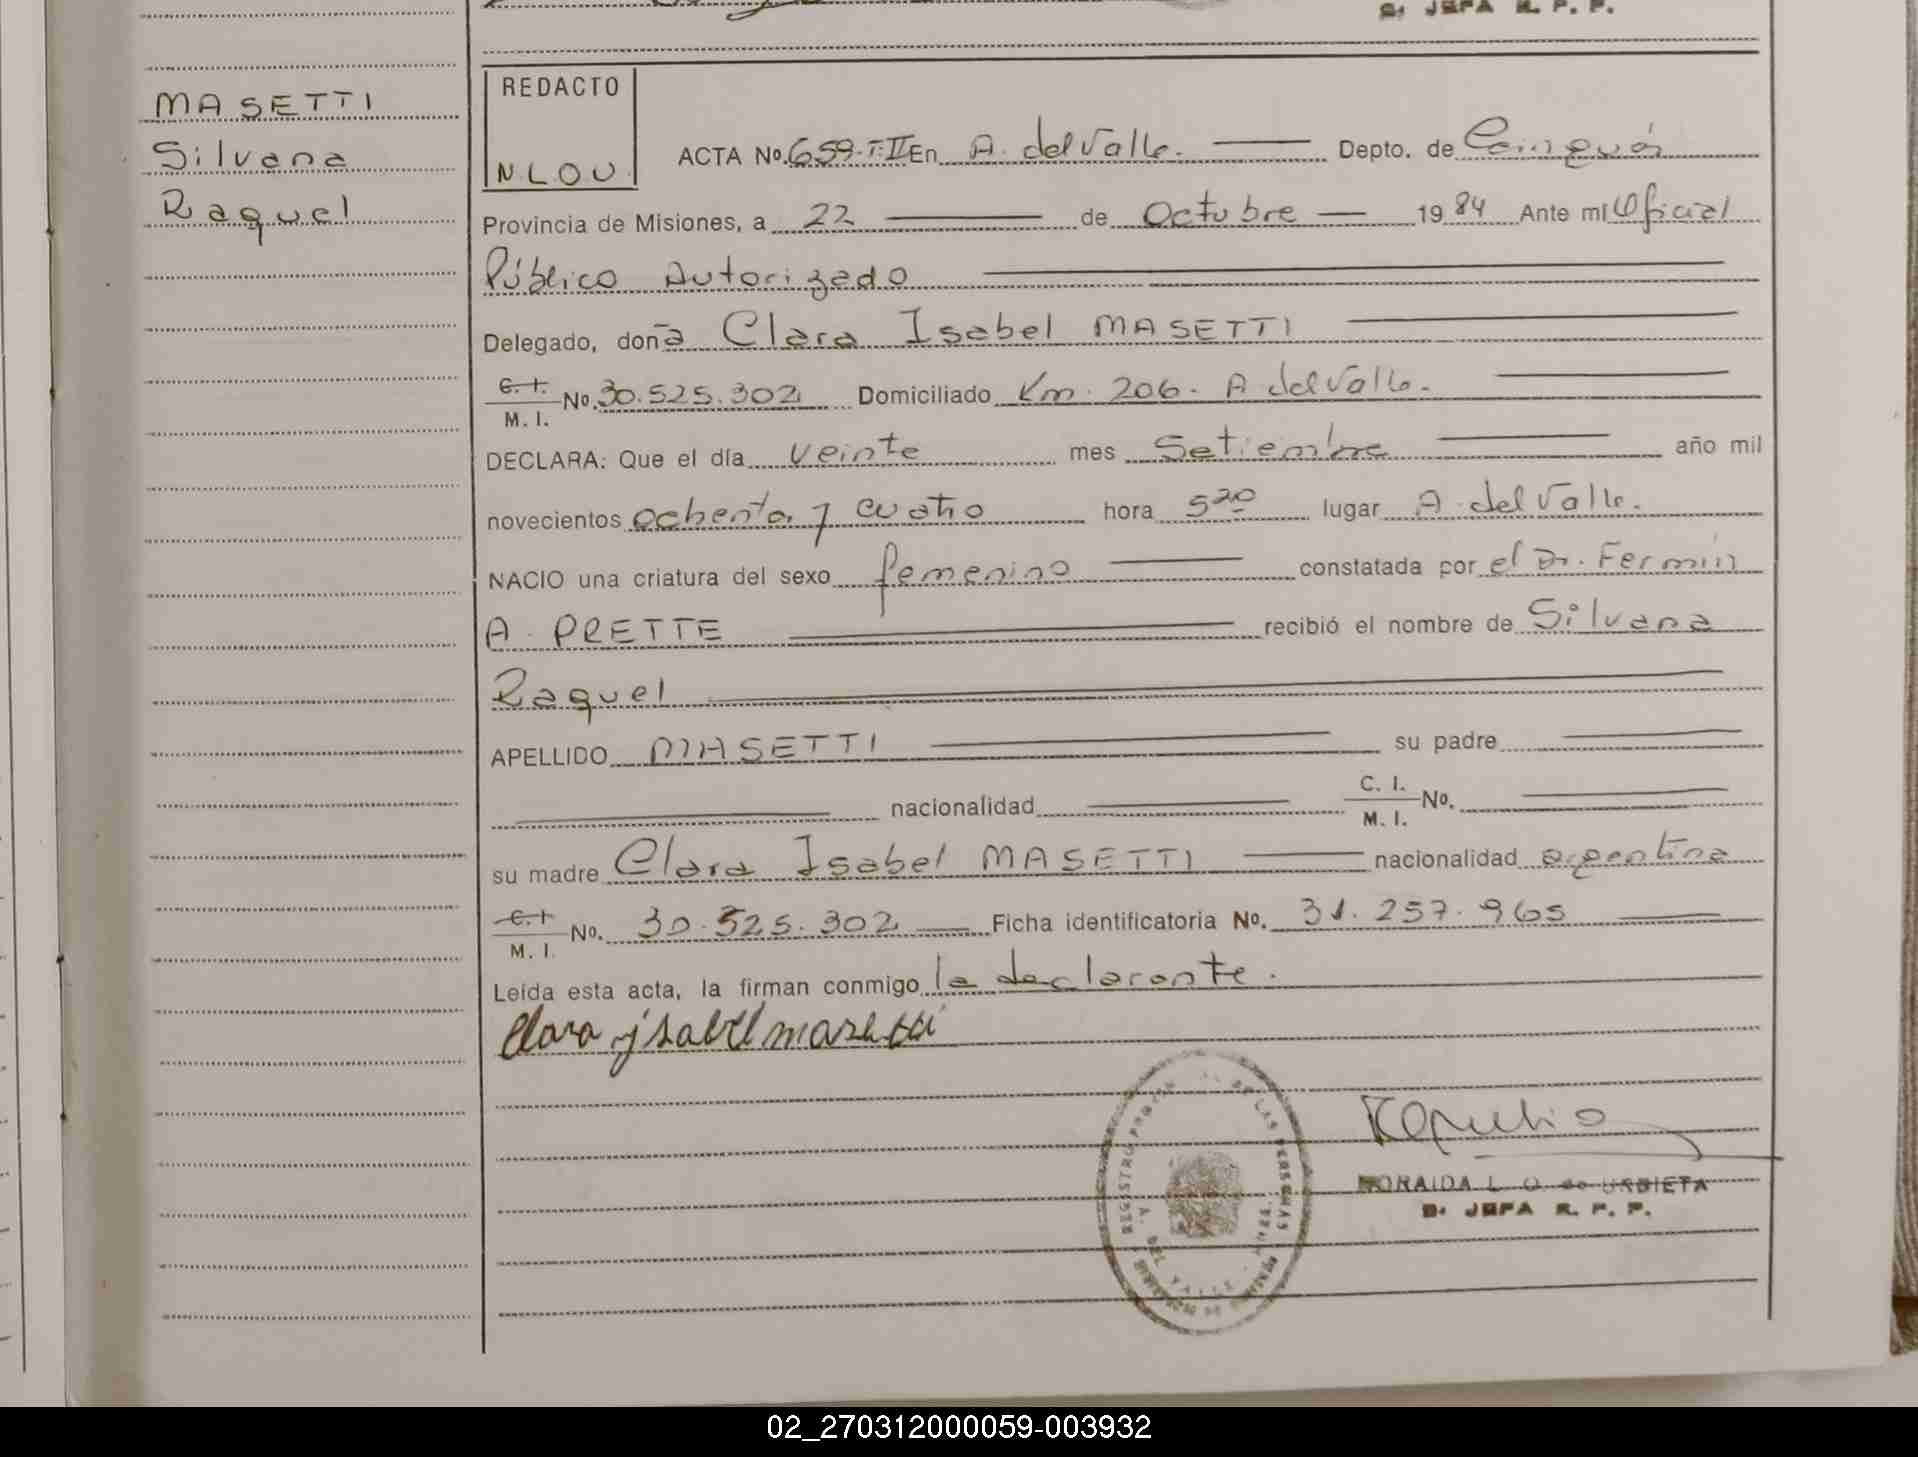 B. JEFA R. P. P.
MASETTI
Silvana
Raquel
REDACTO
N.L.O.U.
ACTA No. 659-T.II En A. del Valle. Depto. de Cainguás
Provincia de Misiones, a 22 de Octubre 1984 Ante mi Oficial
Público Autorizado
Delegado, doña Clara Isabel MASETTI
C. I. M. I. No. 30.525.302 Domiciliado Km. 206. A. del Valle.
DECLARA: Que el día veinte mes Setiembre año mil
novecientos ochenta y cuatro hora 5 20 lugar A. del Valle.
NACIO una criatura del sexo femenino constatada por el Dr. Fermín
A. PRETTE recibió el nombre de Silvana
Raquel
APELLIDO MASETTI su padre
nacionalidad C. I. M. I. No.
su madre Clara Isabel MASETTI nacionalidad argentina
C. I. M. I. No. 30.525.302 Ficha identificatoria No. 31.257.965
Leída esta acta, la firman conmigo la declarante.
Clara ysabel masetti
REGISTRO PROVIN DE LAS PERSONAS
A. DEL VALLE
NORAIDA L. O. de URBIETA
B. JEFA R. P. P.
02_270312000059-003932